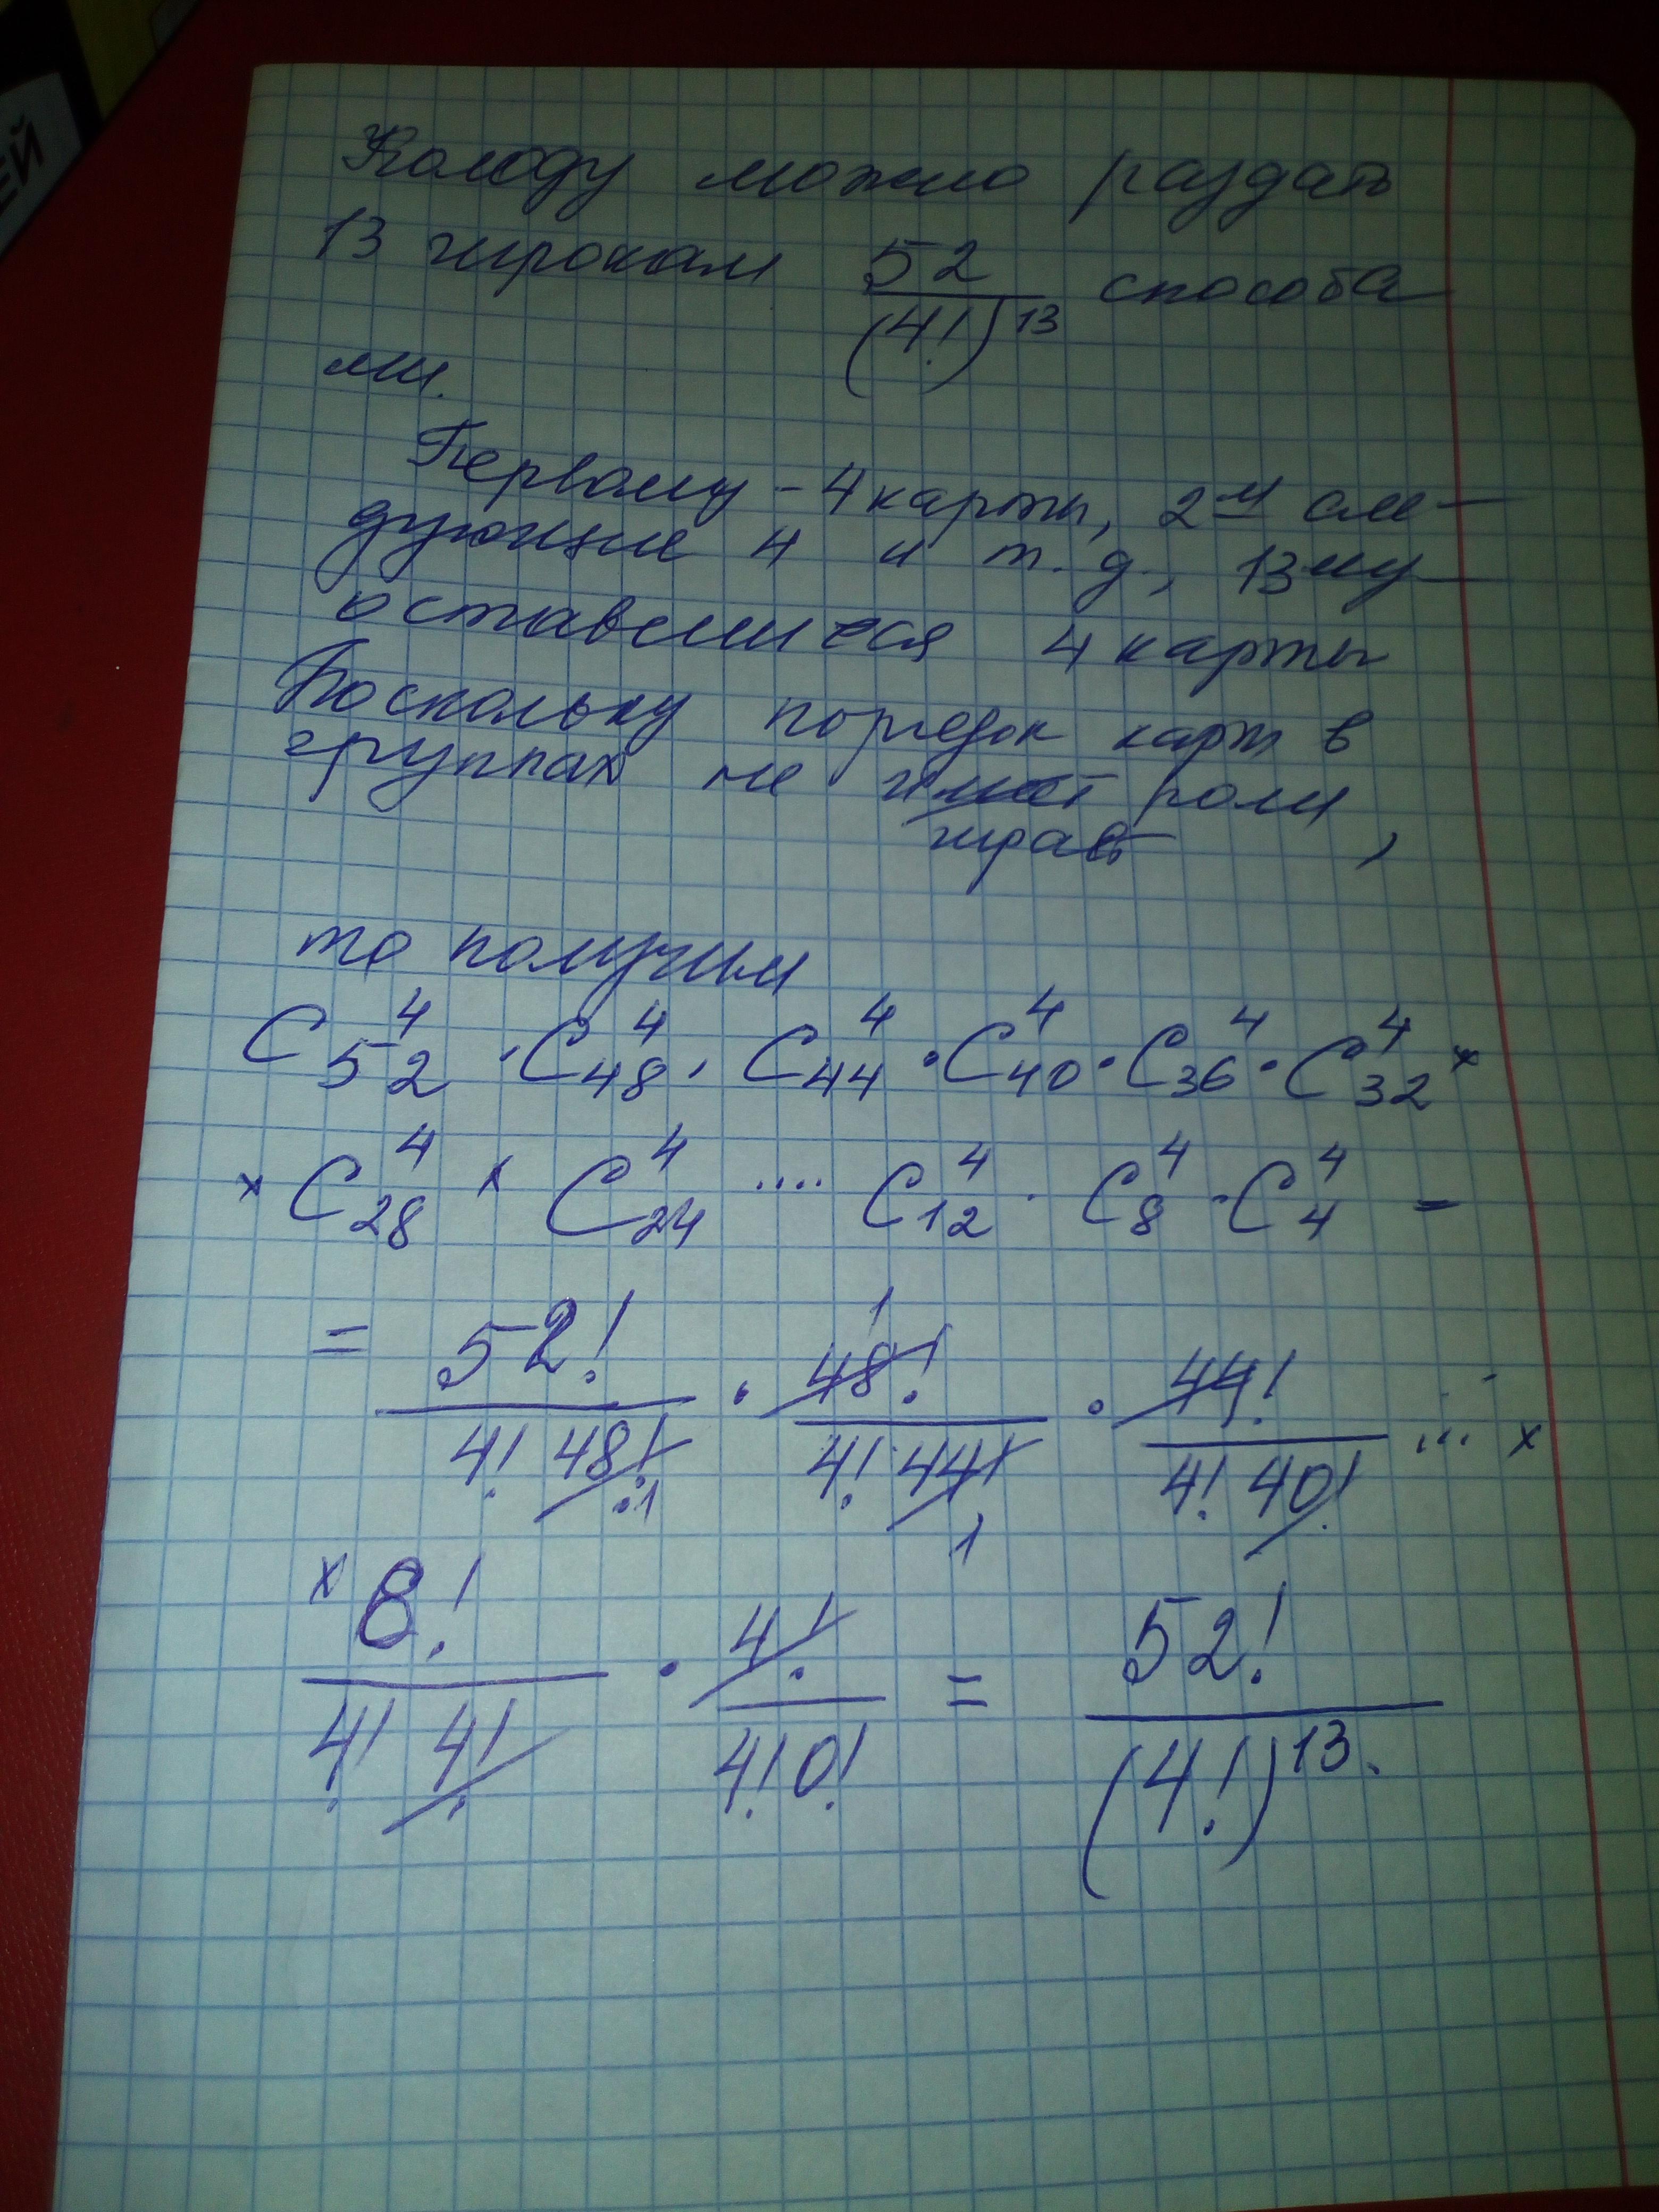 ЕЙ
Колоду можно раздать
13 игрокам \frac{52}{(4!)^{13}} способа
ми.
Первому - 4 карты, 2й сле-
дующие 4 и т. д., 13му
оставшиеся 4 карты
Поскольку порядок карт в
группах не имеет роли,
играет
то получим
C_{52}^{4} · C_{48}^{4} · C_{44}^{4} · C_{40}^{4} · C_{36}^{4} · C_{32}^{4} ×
× C_{28}^{4} × C_{24}^{4} .... C_{12}^{4} · C_{8}^{4} · C_{4}^{4} =
= \frac{52!}{4! 48!} · \frac{48!}{4! 44!} · \frac{44!}{4! 40!} ... ×
× \frac{8!}{4! 4!} · \frac{4!}{4! 0!} = \frac{52!}{(4!)^{13}}.